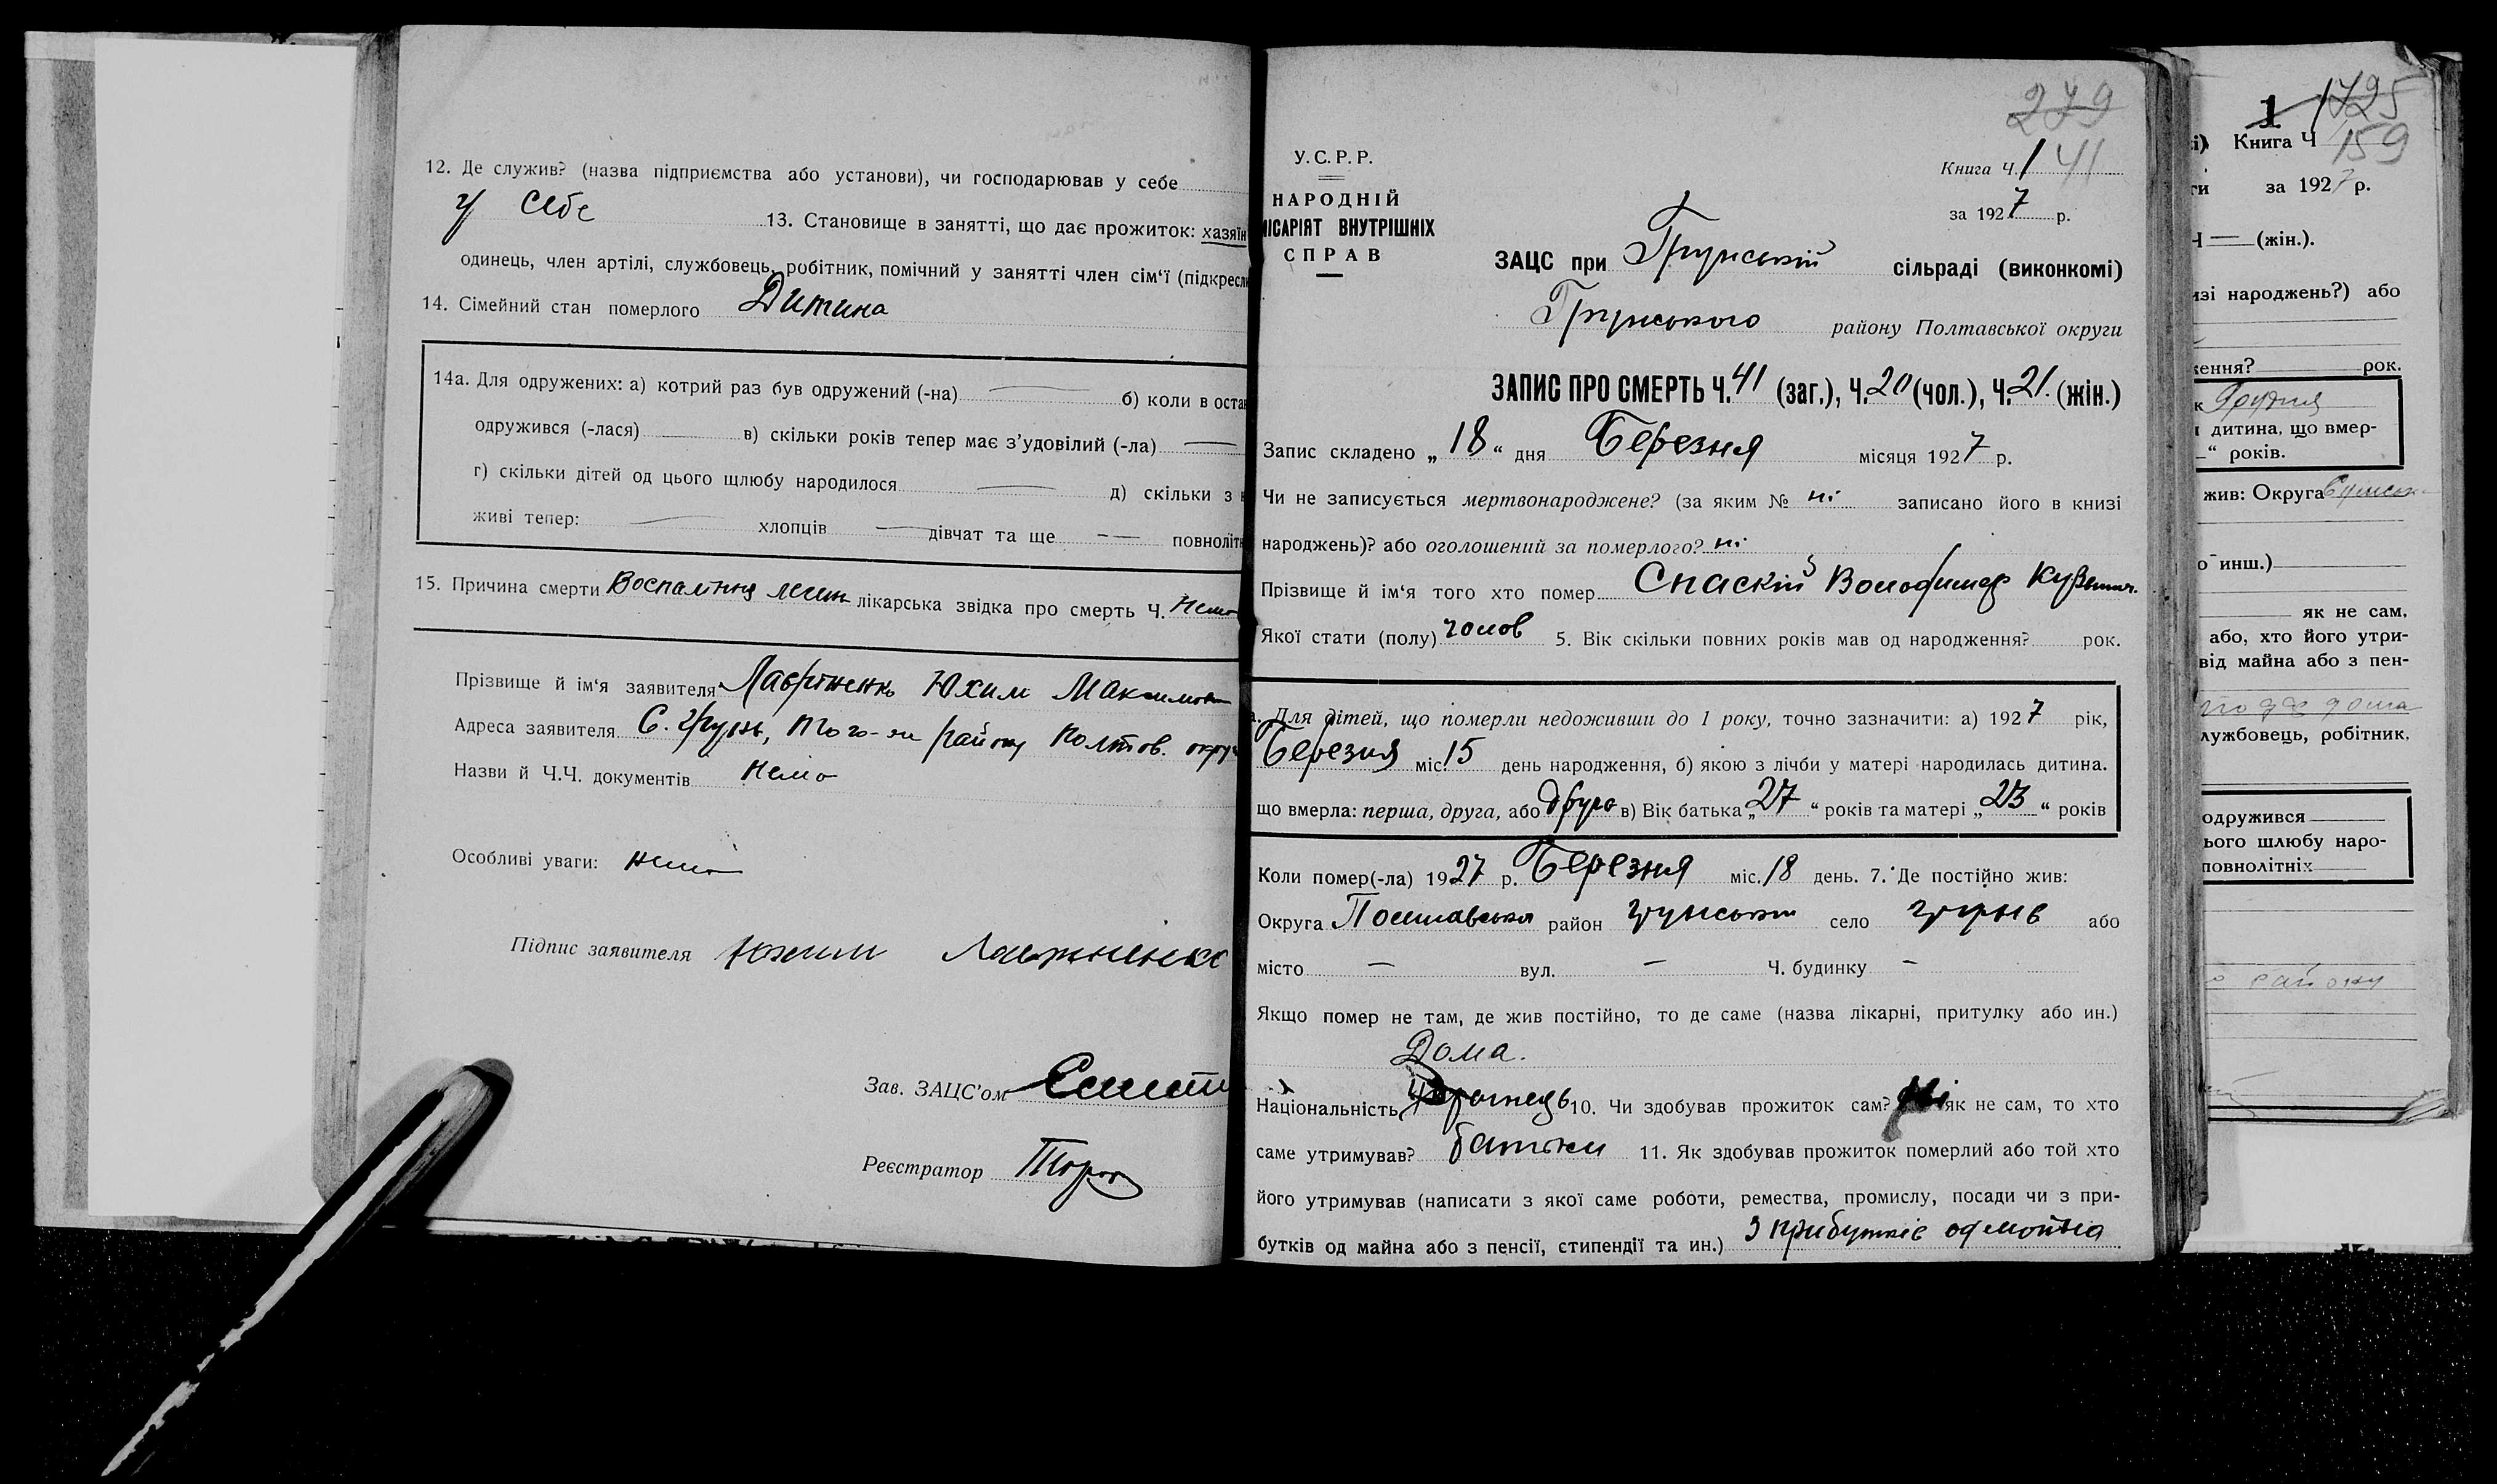 12. Де служив? (назва підприємства або установи), чи господарював у себе
у себе 13. Становище в занятті, що дає прожиток: хазяїн
одинець, член артілі, службовець, робітник, помічний у занятті член сім'ї (підкресли
14. Сімейний стан померлого Дитина
14а. Для одружених: а) котрий раз був одружений (-на) — б) коли в остан
одружився (-лася) — в) скільки років тепер має з'удовілий (-ла) —
г) скільки дітей од цього шлюбу народилося — д) скільки з н
живі тепер: — хлопців — дівчат та ще — — повноліт
15. Причина смерти Воспаління леген лікарська звідка про смерть Ч. Нема
Прізвище й ім'я заявителя Лавріненко Юхим Максимов
Адреса заявителя С. Грунь, того-ж району Полтов. округ
Назви й Ч.Ч. документів Нема
Особливі уваги: Нема
Підпис заявителя Юхим
Зав. ЗАЦС'ом
Реєстратор
279
У.С.Р.Р.
Книга Ч. 1 41
НАРОДНІЙ
за 1927 р.
МІСАРІЯТ ВНУТРІШНІХ
СПРАВ
ЗАЦС при Грунській сільраді (виконкомі)
Грунського району Полтавської округи
ЗАПИС ПРО СМЕРТЬ Ч. 41 (заг.), Ч. 20 (чол.), Ч. 21. (жін.)
Запис складено „ 18 “ дня Березня місяця 1927 р.
Чи не записується мертвонароджене? (за яким № ні записано його в книзі
народжень)? або оголошений за померлого? ні
Прізвище й ім'я того хто помер Спаскій Володимер Кузьмич.
Якої стати (полу) чолов 5. Вік скільки повних років мав од народження? рок.
Для дітей, що померли недоживши до 1 року, точно зазначити: а) 1927 рік,
Березня міс. 15 день народження, б) якою з лічби у матері народилась дитина.
що вмерла: перша, друга, або друга в) Вік батька „ 27 “ років та матері „ 23 “ років
Коли помер(-ла) 1927 р. Березня міс. 18 день. 7. Де постійно жив:
Округа Полтавська район Грунський село Грунь або
місто — вул. — Ч. будинку —
Якщо помер не там, де жив постійно, то де саме (назва лікарні, притулку або ин.)
Дома.
Національність Украінець 10. Чи здобував прожиток сам? Ні як не сам, то хто
саме утримував? батьки 11. Як здобував прожиток померлий або той хто
його утримував (написати з якої саме роботи, ремества, промислу, посади чи з при-
бутків од майна або з пенсії, стипендії та ин.) З прибутків од майна
1 1725
Книга Ч 159
за 1927 р.
Ч — (жін.).
изі народжень?) або
ження? рок.
Грудня
дитина, що вмер-
“ років.
жив: Округа Сумськ
о инш.)
як не сам,
або, хто його утри-
від майна або з пен-
лужбовець, робітник,
одружився
ього шлюбу наро-
повнолітніх
району